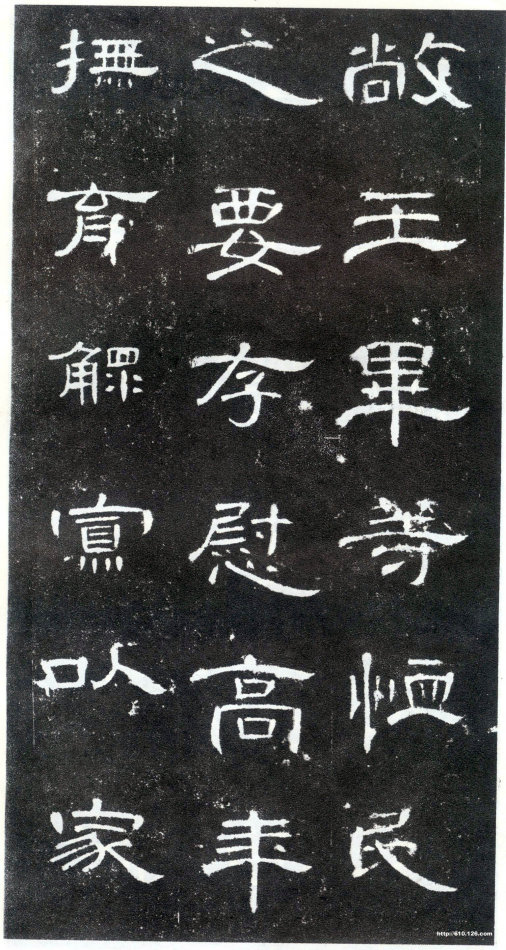 敞王畢等恤民
之要存慰高年
撫育鰥寡以家
http://610.126.com